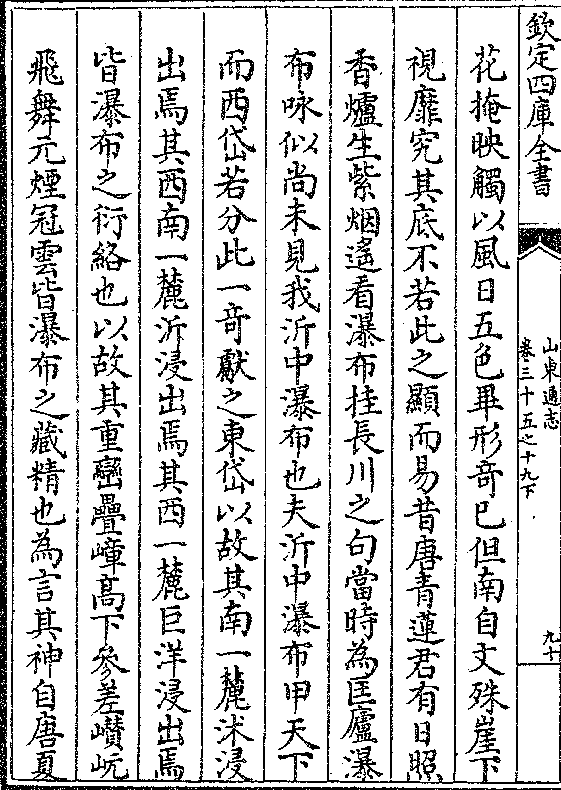 欽定四庫全書
山東通志
卷三十五之十九下
九十
花掩映觸以風日五色畢形竒已但南自文殊崖下
視靡究其底不若此之顯而易昔唐青蓮君有日照
香爐生紫烟遙看瀑布挂長川之句當時為匡廬瀑
布咏似尚未見我沂中瀑布也夫沂中瀑布甲天下
而西岱若分此一竒獻之東岱以故其南一麓沭浸
出焉其西南一麓沂浸出焉其西一麓巨洋浸出焉
皆瀑布之衍絡也以故其重巒疊嶂髙下參差巑岏
飛舞元煙冠雲皆瀑布之藏精也為言其神自唐夏